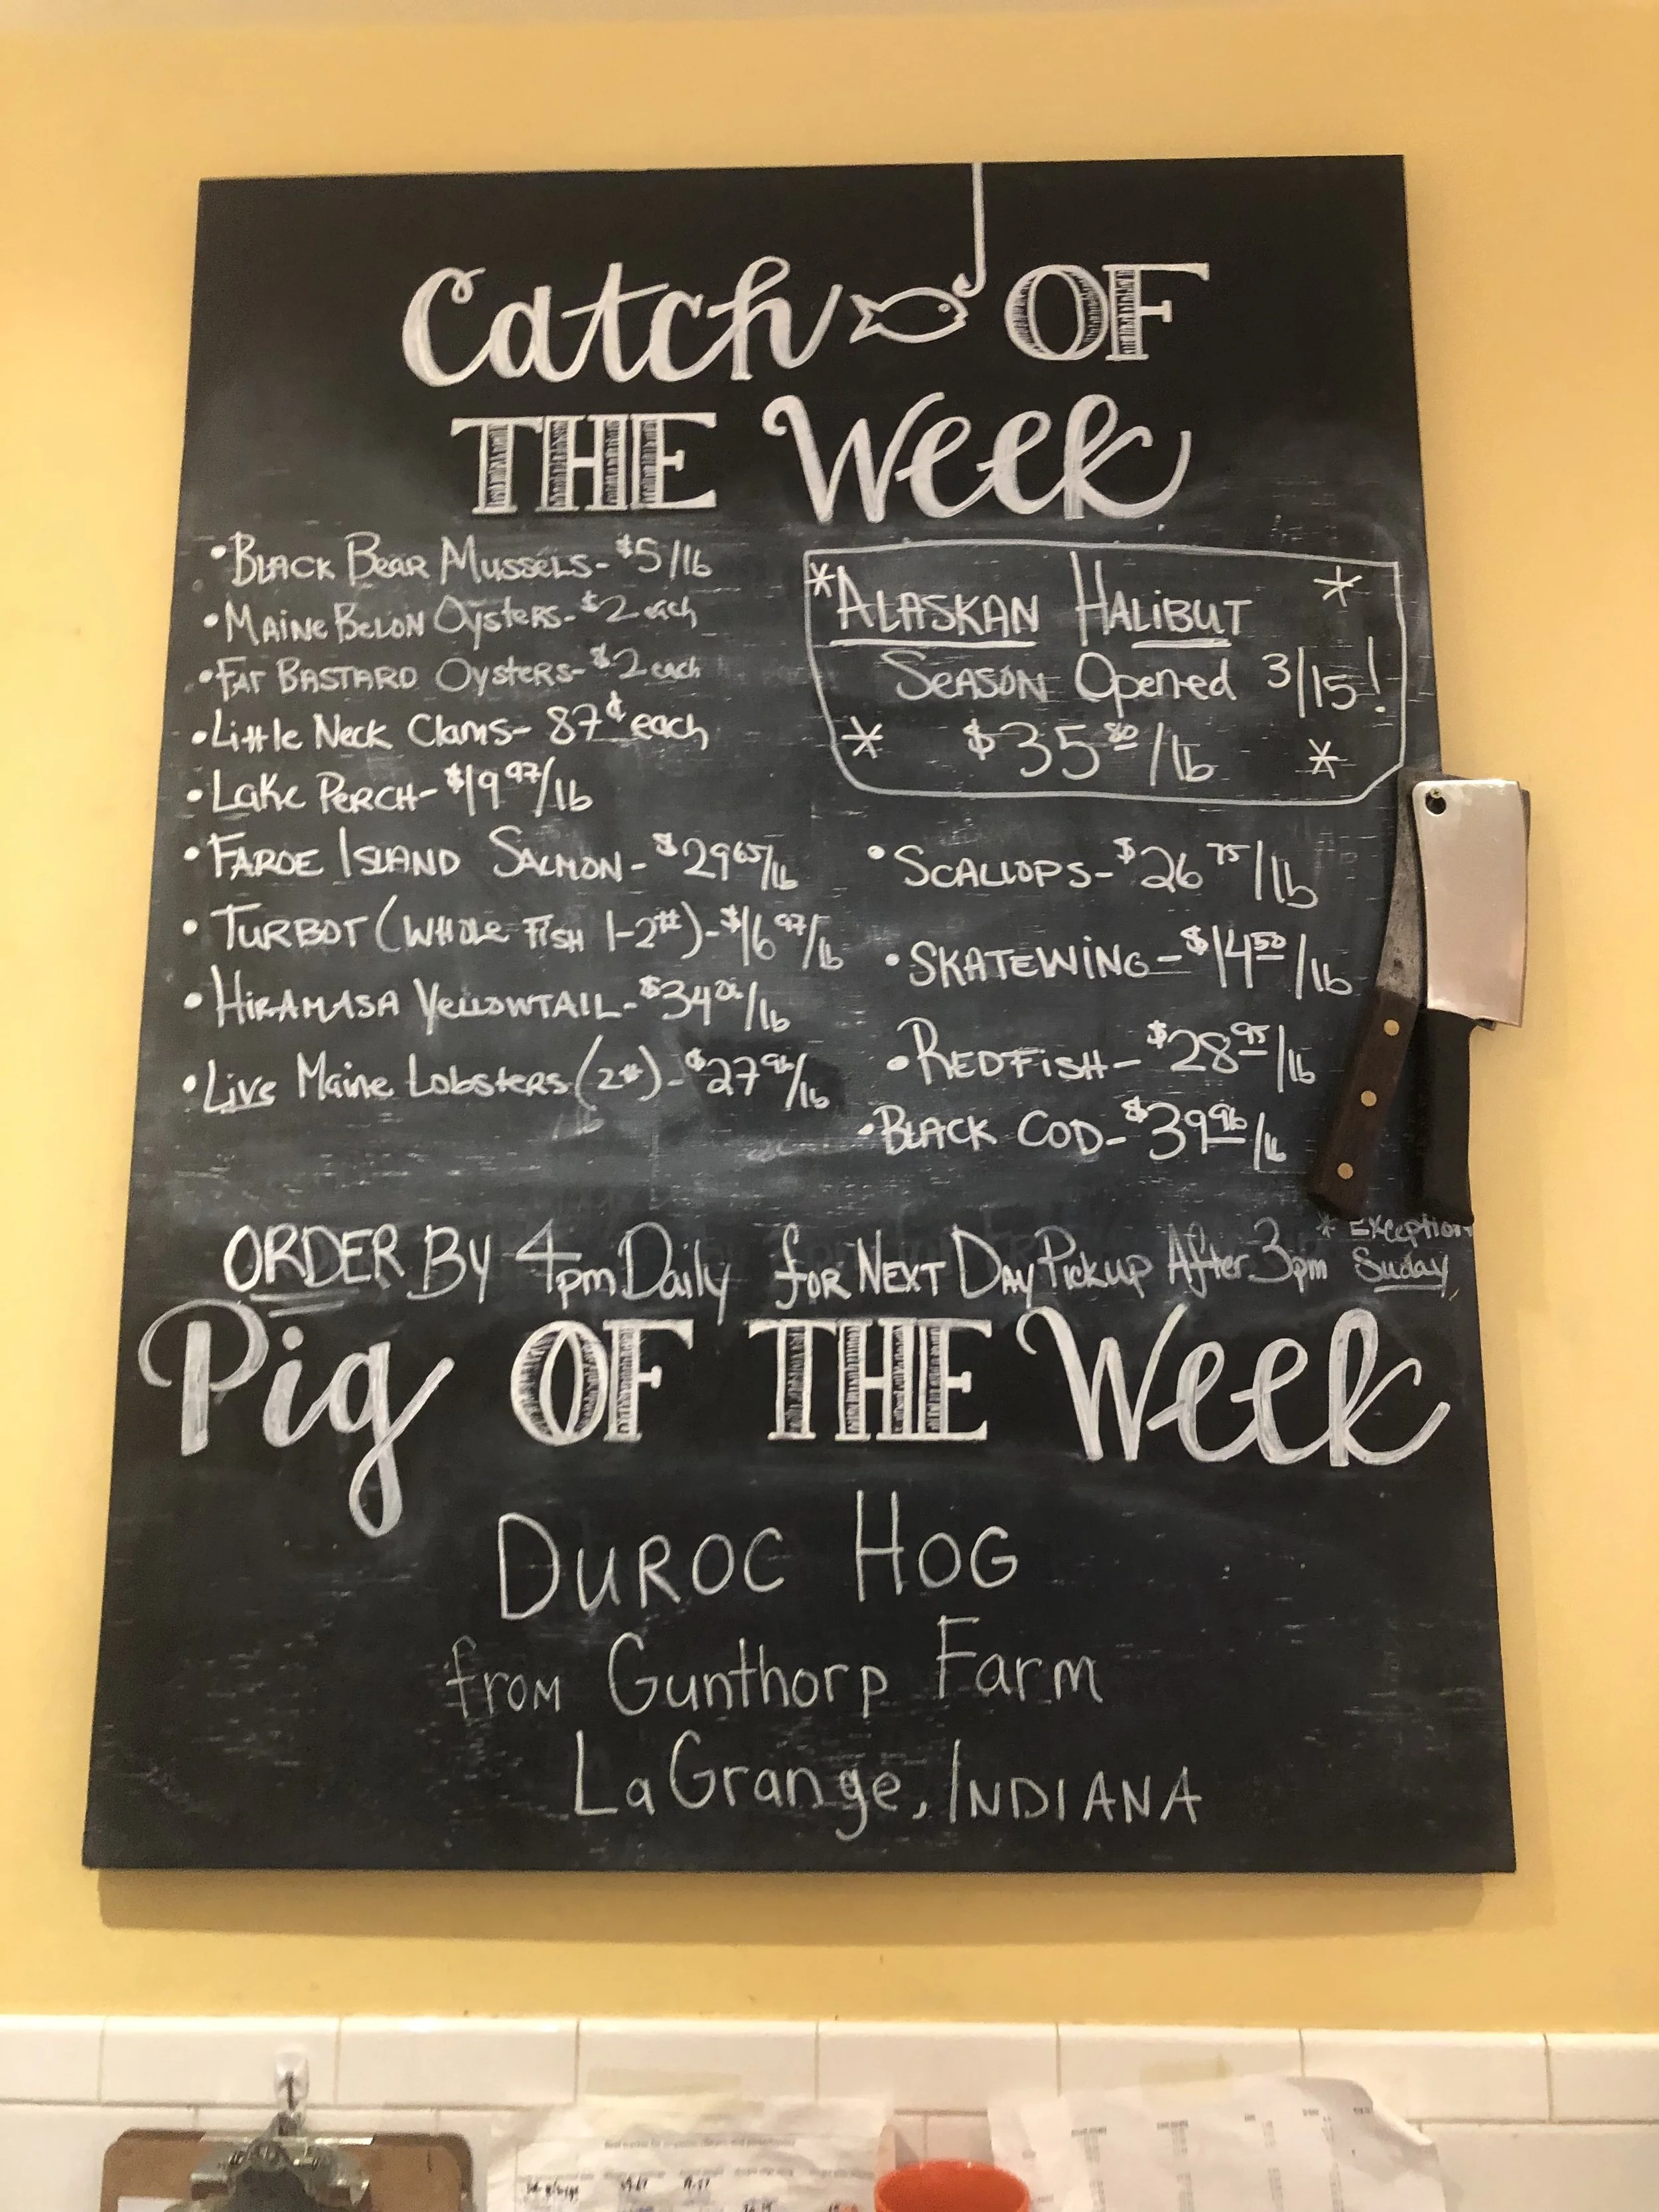 Catch OF
THE Week
• BLACK BEAR MUSSELS - $5/lb
• MAINE BELON OYSTERS - $2 each
• FAT BASTARD OYSTERS - $2 each
• Little Neck Clams - 87¢ each
• LAKE PERCH - $19 97/lb
• FAROE ISLAND SALMON - $29 65/lb
• TURBOT (WHOLE FISH 1-2#) - $16 97/lb
• HIRAMASA YELLOWTAIL - $34 /lb
• LIVE MAINE LOBSTERS (2#) - $27 96/lb
* ALASKAN HALIBUT *
SEASON Opened 3/15!
* $35 80/lb *
• SCALLOPS - $26 75/lb
• SKATEWING - $14 50/lb
• REDFISH - $28 95/lb
• BLACK COD - $39 96/lb
ORDER BY 4pm Daily for NEXT DAY Pickup After 3pm * Exception
Suday
Pig OF THE Week
DUROC HOG
from Gunthorp Farm
LaGrange, INDIANA